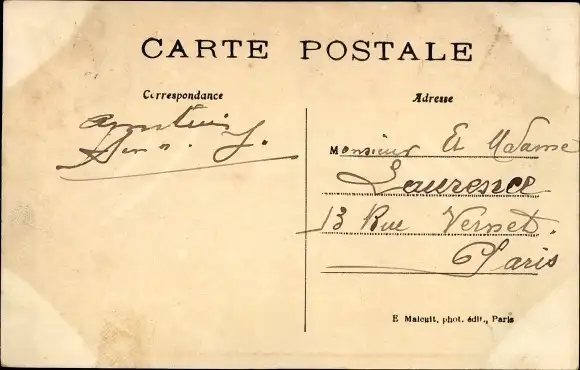 CARTE POSTALE
Correspondance
Adresse
Monsieur Et Madame
Laurence
13 Rue Vernet.
Paris
E Malcuit, phot. édit., Paris